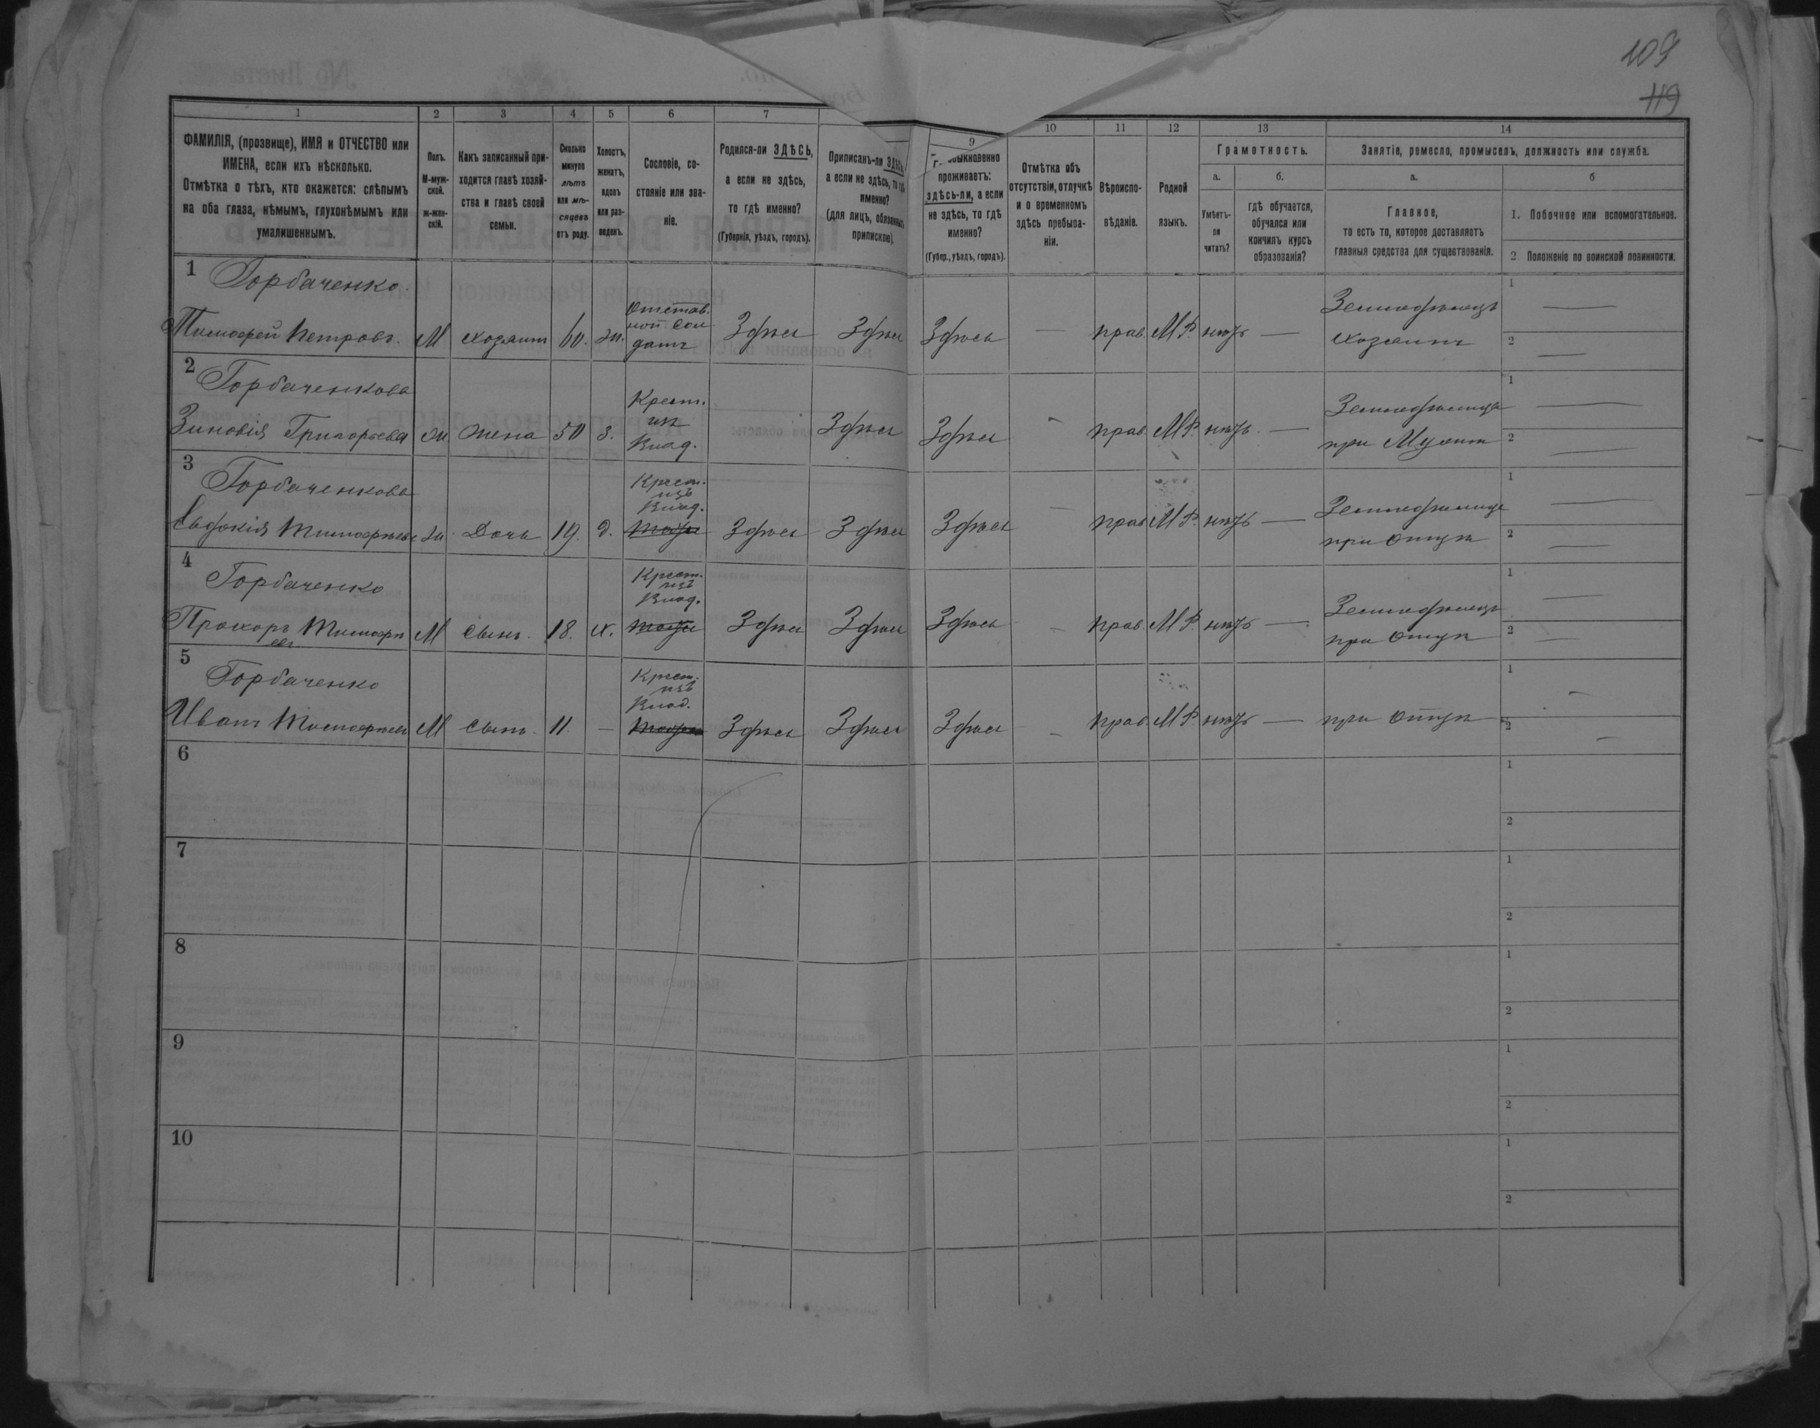 109
119
1
2
3
4
5
6
7
8
9
10
11
12
13
14
ФАМИЛІЯ, (прозвище), ИМЯ и ОТЧЕСТВО или
ИМЕНА, если ихъ нѣсколько.
Отмѣтка о тѣхъ, кто окажется: слѣпымъ
на оба глаза, нѣмымъ, глухонѣмымъ или
умалишеннымъ.
Полъ.
М-муж-
ской.
ж-жен-
скій.
Какъ записанный при-
ходится главѣ хозяй-
ства и главѣ своей
семьи.
Сколько
минуло
лѣтъ
или мѣ-
сяцевъ
отъ роду.
Холостъ,
женатъ,
вдовъ
или раз-
веденъ.
Сословіе, со-
стояніе или зва-
ніе.
Родился-ли ЗДѢСЬ,
а если не здѣсь,
то гдѣ именно?
(Губернія, уѣздъ, городъ).
Приписанъ-ли ЗДѢСЬ,
а если не здѣсь, то гдѣ
именно?
(для лицъ, обязанныхъ
припискою).
проживаетъ:
здѣсь-ли, а если
не здѣсь, то гдѣ
именно?
(Губер., уѣздъ, городъ).
Отмѣтка объ
отсутствіи, отлучкѣ
и о временномъ
здѣсь пребыва-
ніи.
Вѣроиспо-
вѣданіе.
Родной
языкъ.
Грамотность.
а.
Умѣетъ-
ли
читать?
б.
гдѣ обучается,
обучался или
кончилъ курсъ
образованія?
Занятіе, ремесло, промыселъ, должность или служба.
а.
Главное,
то есть то, которое доставляетъ
главныя средства для существованія.
б
1. Побочное или вспомогательное.
2. Положеніе по воинской повинности.
1 Горбаченко
Тимофей Петровъ М хозяинъ 60. ж. Отстав-ной солдатъ Здѣсь Здѣсь Здѣсь — прав. М Р. нѣтъ — Земледѣлецъ хозяинъ 1 — 2 —
2 Горбаченкова
Зиновія Григорьева ж. жена 50 з. Крест. из Влад. Здѣсь Здѣсь - прав. М Р. нѣтъ — Земледѣлица при Мужѣ 1 — 2 —
3 Горбаченкова
Евдокія Тимофѣева ж. Дочь 19. д. Крест. изъ Влад. Здѣсь Здѣсь Здѣсь — прав. М Р. нѣтъ — Земледѣлица при Отцѣ 1 — 2 —
4 Горбаченко
Прохоръ Тимофѣевъ М сынъ. 18. х. Крест. изъ Влад. Здѣсь Здѣсь Здѣсь — прав. М Р. нѣтъ — Земледѣлецъ при Отцѣ 1 — 2 —
5 Горбаченко
Иванъ Тимофѣевъ М сынъ. 11. — Крест. изъ Влад. Здѣсь Здѣсь Здѣсь - прав. М Р. нѣтъ — при Отцѣ 1 - 2 -
6 1
2
7 1
2
8 1
2
9 1
2
10 1
2